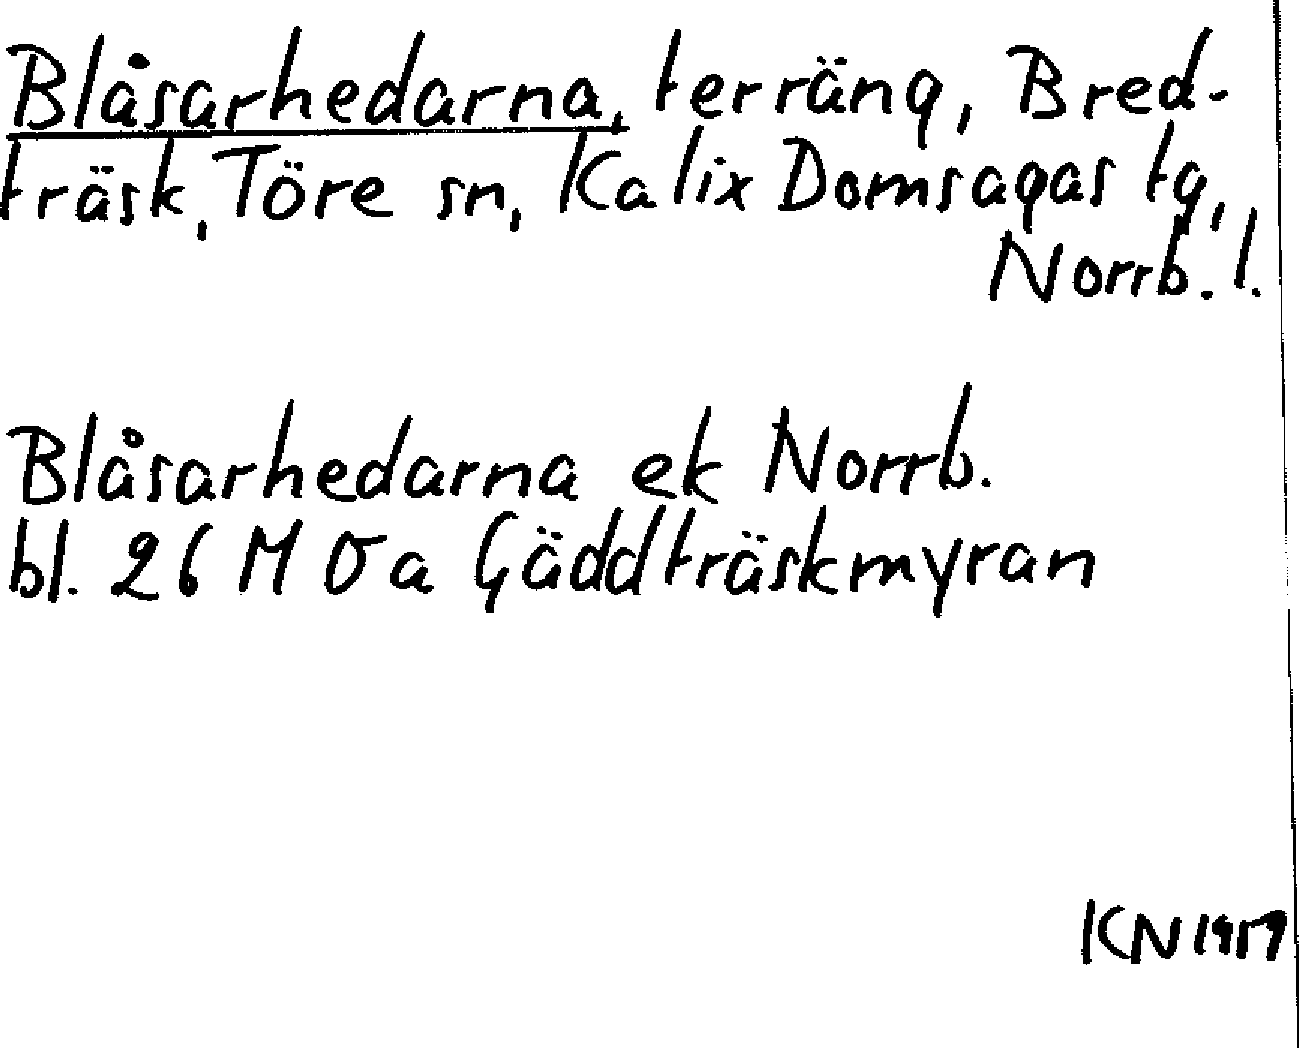 Blåsarhedarna, terräng, Bred-
träsk, Töre sn, Kalix Domsagas tg,
Norrb. l.
Blåsarhedarna ek Norrb.
bl. 26 M O a Gäddträskmyran
KN 1959